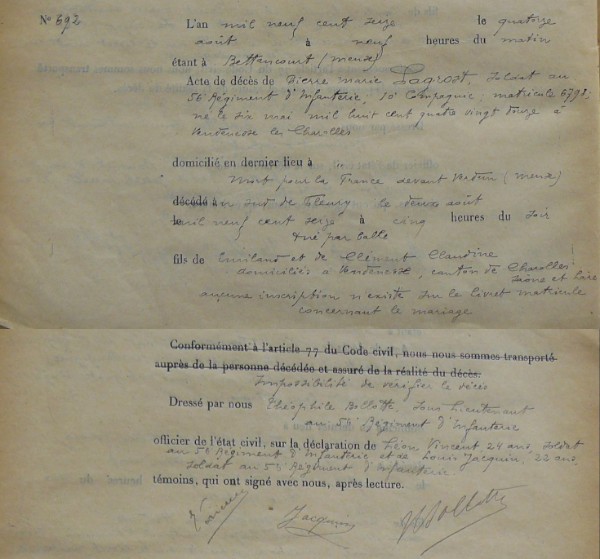 N° 692
L'an mil neuf cent seize le quatorze
août à neuf heures du matin
étant à Bettancourt (Meuse)
Acte de décès de Pierre Marie Lagrost, soldat au
56 Régiment d'Infanterie, 10e Compagnie, matricule 6798,
né le six mai mil huit cent quatre vingt douze à
Vendenesse les Charolles
domicilié en dernier lieu à
Mort pour la France devant Verdun (Meuse)
décédé au sud de Fleury le deux août
le mil neuf cent seize à cinq heures du soir
tué par balle
fils de Emiland et de Clément Claudine
domiciliés à Vendenesse, canton de Charolles
Saône et Loire
aucune inscription n'existe sur le livret matricule
concernant le mariage
Conformément à l'article 77 du Code civil, nous nous sommes transporté
auprès de la personne décédée et assuré de la réalité du décès.
Impossibilité de vérifier le décès
Dressé par nous Théophile Bollotte, Sous Lieutenant
au 56 Régiment d'Infanterie
officier de l'état civil, sur la déclaration de Léon Vincent 24 ans, soldat
au 56 Régiment d'Infanterie et de Louis Jacquin, 22 ans,
soldat au 56 Régiment d'Infanterie
témoins, qui ont signé avec nous, après lecture.
Vincent Jacquin Bollotte